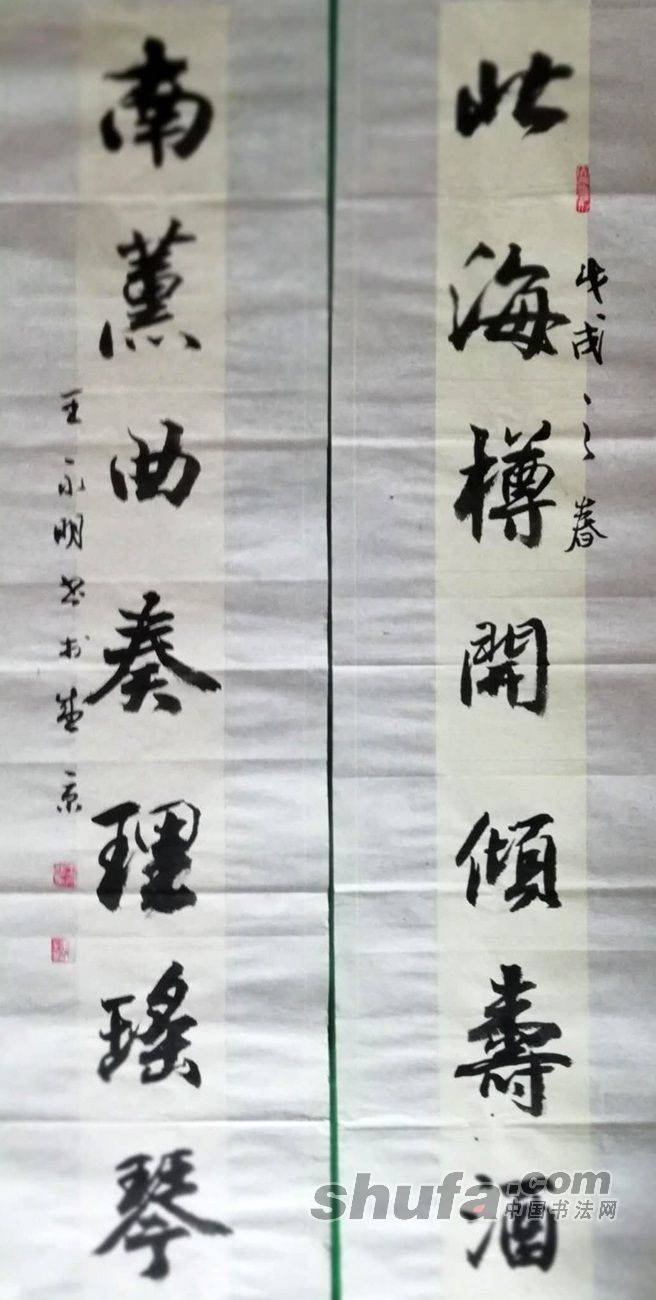 戊戌之春
北海樽開傾壽酒
南薰曲奏理瑤琴
王永明书於京
shufa.com
中国书法网